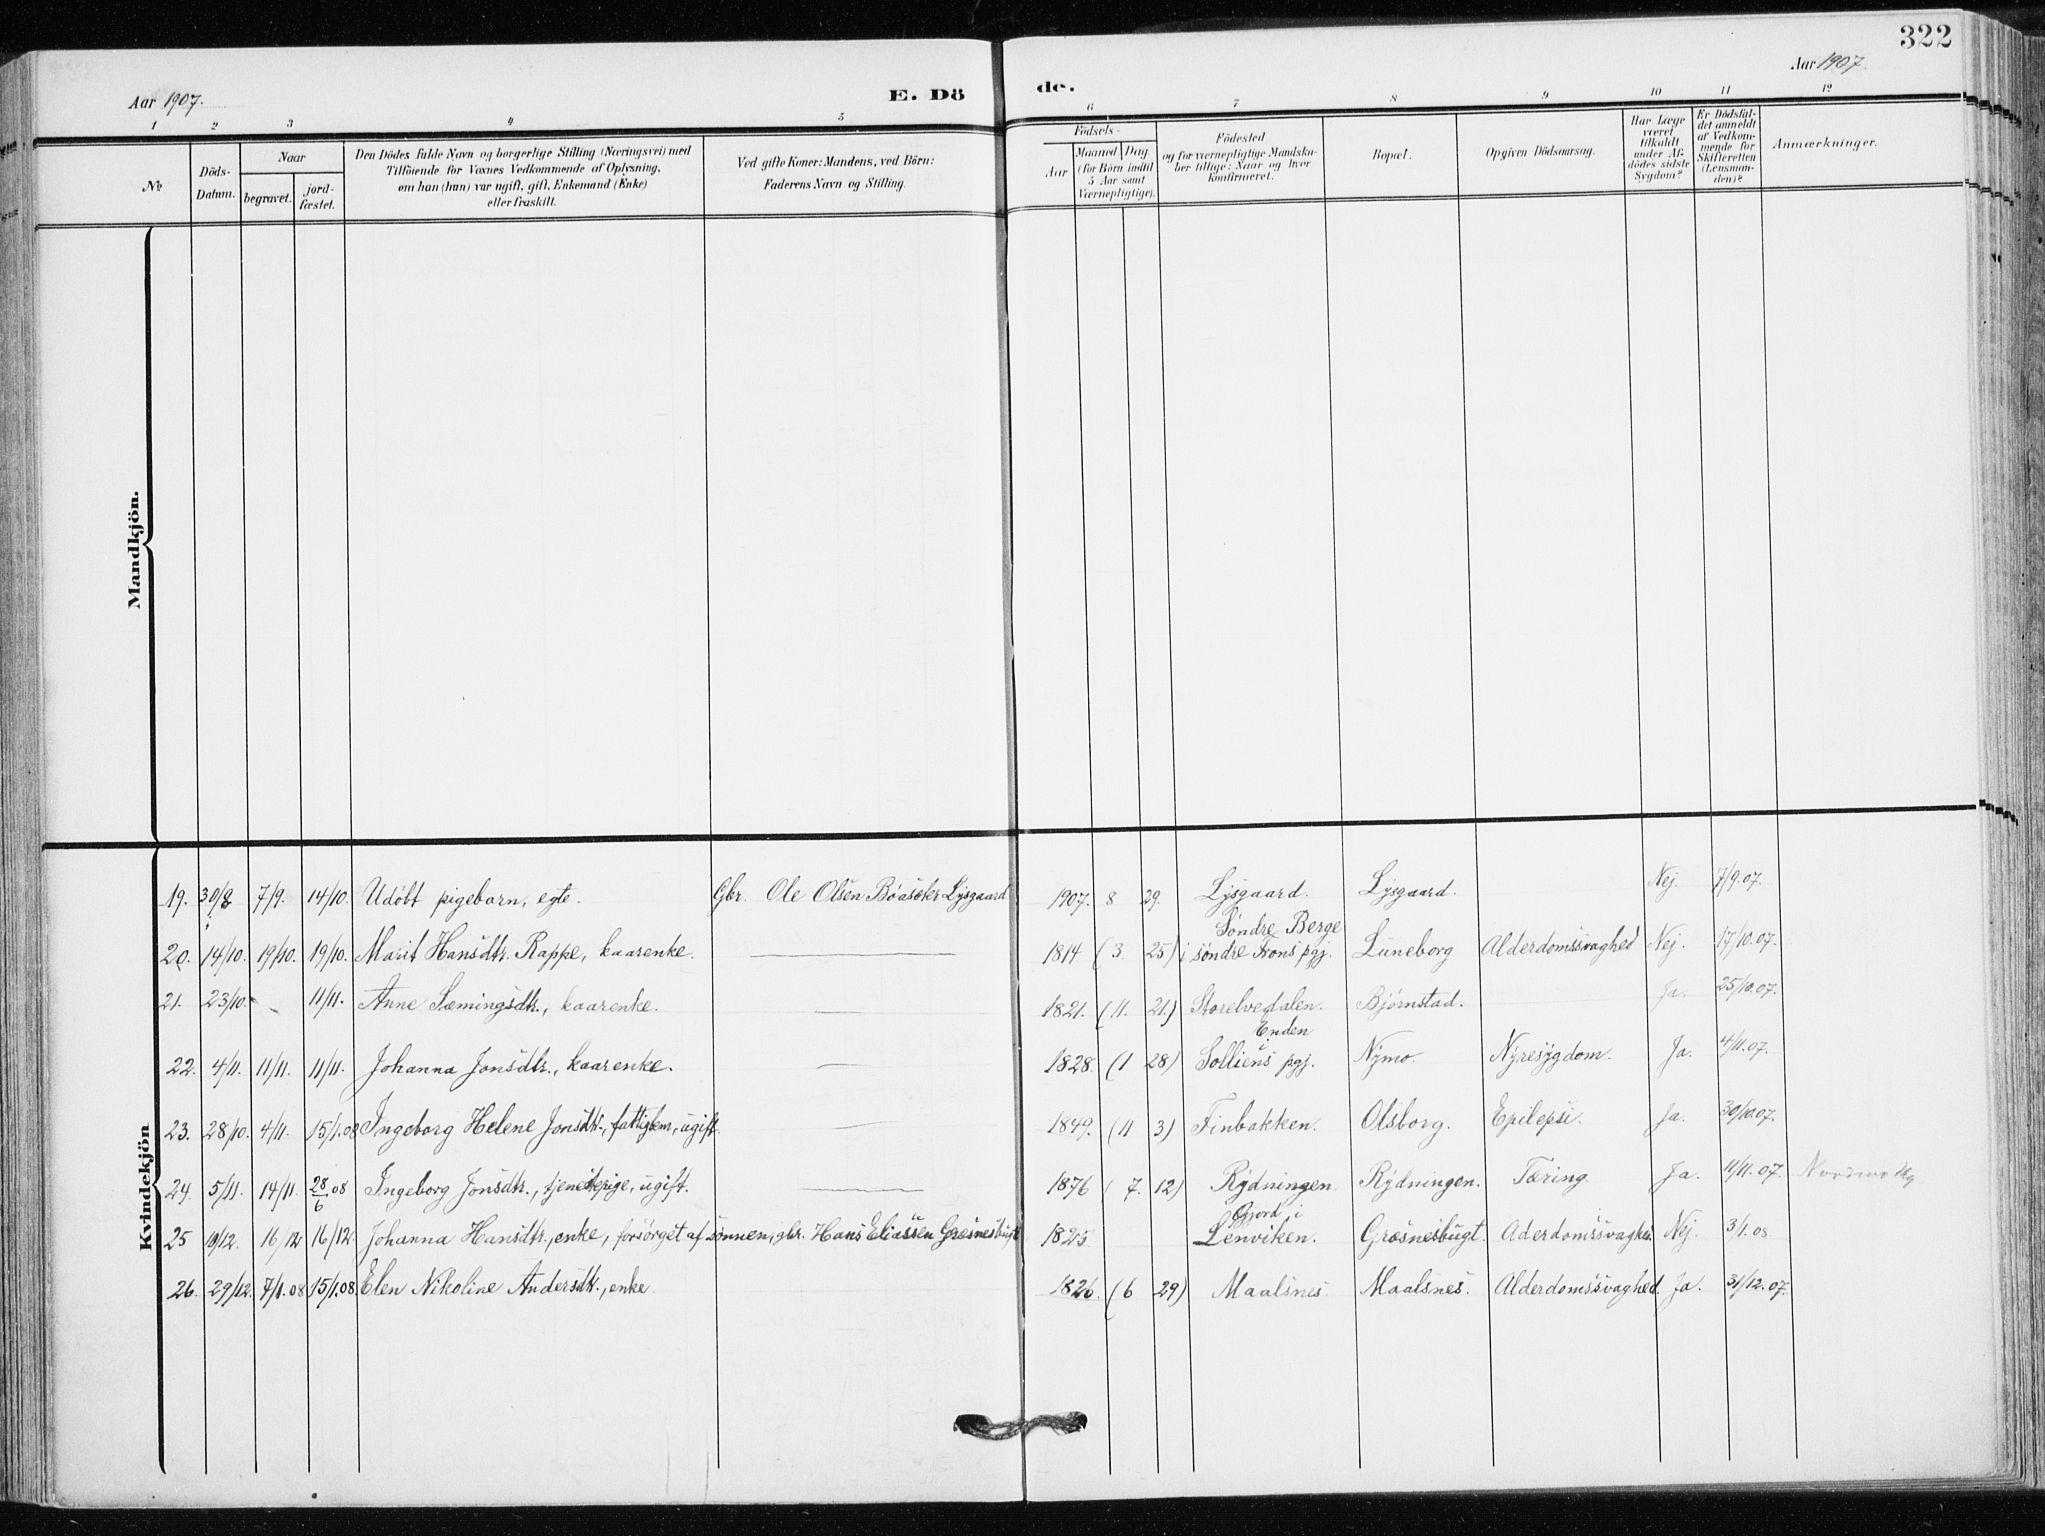 322
Aar 1907.
E. Dödе.
Aar 1907.
1 2 3 4 5 6 7 8 9 10 11 12
№
Döds-Datum.
Naar
begravet.
jord-fæstet.
Den Dödes fulde Navn og borgerlige Stilling (Næringsvei) med
Tilföiende for Voxnes Vedkommende af Oplysning,
om han (hun) var ugift, gift, Enkemand (Enke)
eller fraskilt.
Ved gifte Koner: Mandens, ved Börn:
Faderens Navn og Stilling.
Födsels-
Aar
Maaned Dag
(for Börn indtil
5 Aar samt
Værnepligtige).
Födested
og for værnepligtige Mandska-
ber tillige: Naar og hvor
konfirmeret.
Bopæl.
Opgiven Dödsaarsag.
Har Læge
været
tilkaldt
under Af-
dödes sidste
Sygdom?
Er Dödsfal-
det anmeldt
af Vedkom-
mende for
Skifteretten
(Lensman-
den)?
Anmærkninger.
Mandkjön.
Kvindekjön
19. 30/8 7/9. 14/10. Udöbt pigebarn, egte. Gbr. Ole Olsen Lysgaard 1907. 8 29. Lysgaard. Lysgaard. Nej. 7/9.07.
20. 14/10. 19/10. 19/10. Marit Hansdtr. Rappe, kaarenke. 1814 (3. 25) Søndre Berge i søndre Frons pgj. Luneborg Alderdomssvaghed Nej. 17/10.07.
21. 23/10. - 11/11. Anne Sæmingsdtr., kaarenke. 1821. (11. 21.) Storelvedalen. Bjørnstad. Ja. 25/10.07.
22. 4/11. 11/11. 11/11. Johanna Jonsdtr., kaarenke. 1828. (1 28) Enden i Solliens pgj. Nymo. Nyresygdom. Ja. 4/11.07.
23. 28/10. 4/11. 15/1.08 Ingeborg Helene Jonsdtr., fattiglem, ugift. 1849. (11 3) Finbakken. Olsborg. Epilepsi. Ja. 30/10.07.
24. 5/11. 14/11. 28/6.08 Ingeborg Jonsdtr., tjenestepige, ugift. 1876 (7. 12) Rydningen Rydningen. Tæring. Ja. 11/11.07.
25 10/12. 16/12. 16/12. Johanna Hansdtr., enke, forsørget af sønnen, gbr. Hans Eliassen Græsnesbugt 1825 Gjord, i Lenviken. Græsnesbugt. Aderdomssvaghed Nej. 3/1.08
26. 29/12. 7/1.08 15/1.08 Elen Nikoline Andersdtr., enke. 1826. (6 29) Maalsnes Maalsnes. Alderdomssvaghed. Ja. 31/12.07.